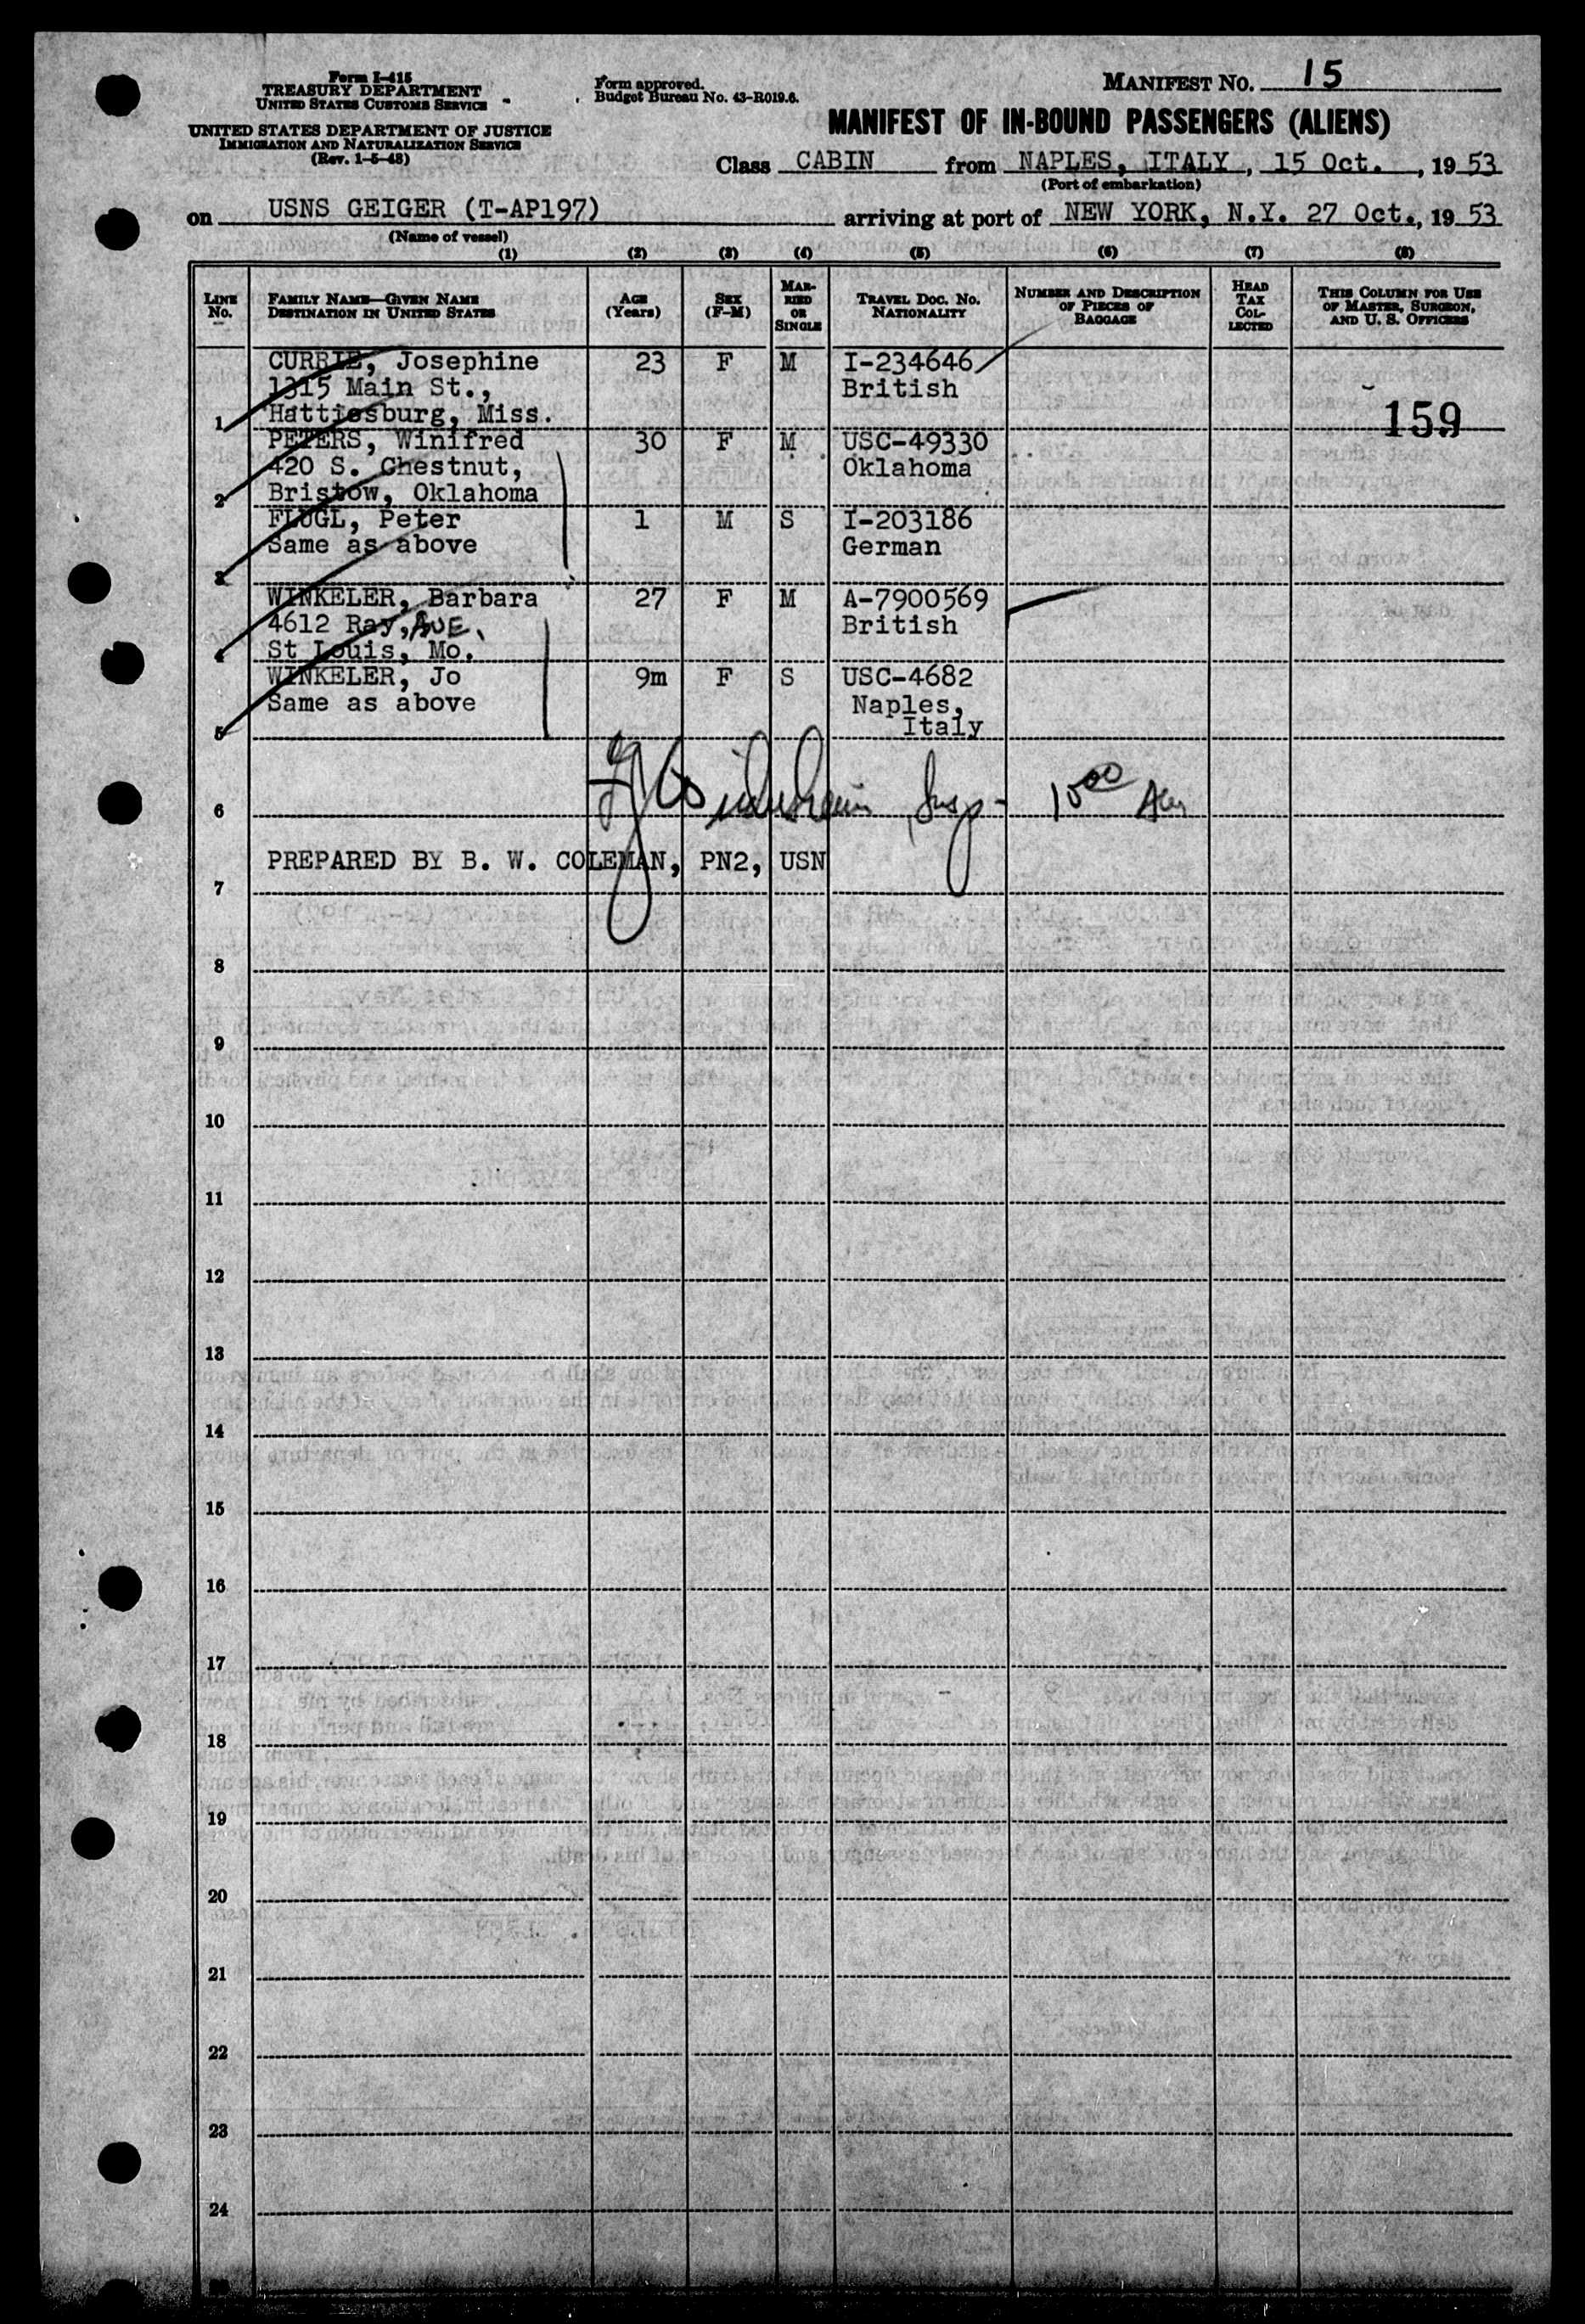 Form I-415
TREASURY DEPARTMENT
UNITED STATES CUSTOMS SERVICE
UNITED STATES DEPARTMENT OF JUSTICE
IMMIGRATION AND NATURALIZATION SERVICE
(Rev. 1-5-48)
Form approved.
Budget Bureau No. 43-R019.6.
MANIFEST NO. 15
MANIFEST OF IN-BOUND PASSENGERS (ALIENS)
Class CABIN from NAPLES, ITALY, 15 Oct., 19 53
(Port of embarkation)
on USNS GEIGER (T-AP197) arriving at port of NEW YORK, N.Y. 27 Oct., 19 53
(Name of vessel)
(1) (2) (3) (4) (5) (6) (7) (8)
LINE No. FAMILY NAME—GIVEN NAME DESTINATION IN UNITED STATES AGE (Years) SEX (F-M) MARRIED OR SINGLE TRAVEL DOC. NO. NATIONALITY NUMBER AND DESCRIPTION OF PIECES OF BAGGAGE HEAD TAX COLLECTED THIS COLUMN FOR USE OF MASTER, SURGEON, AND U. S. OFFICERS
CURRIE, Josephine 23 F M I-234646
1315 Main St., British
1 Hattiesburg, Miss. 159
PETERS, Winifred 30 F M USC-49330
420 S. Chestnut, Oklahoma
2 Bristow, Oklahoma
FLUGL, Peter 1 M S I-203186
Same as above German
3
WINKELER, Barbara 27 F M A-7900569
4612 Ray, AVE. British
4 St Louis, Mo.
WINKELER, Jo 9m F S USC-4682
Same as above Naples,
5 Italy
6 Insp- 10 00
PREPARED BY B. W. COLEMAN, PN2, USN
7
8
9
10
11
12
13
14
15
16
17
18
19
20
21
22
23
24